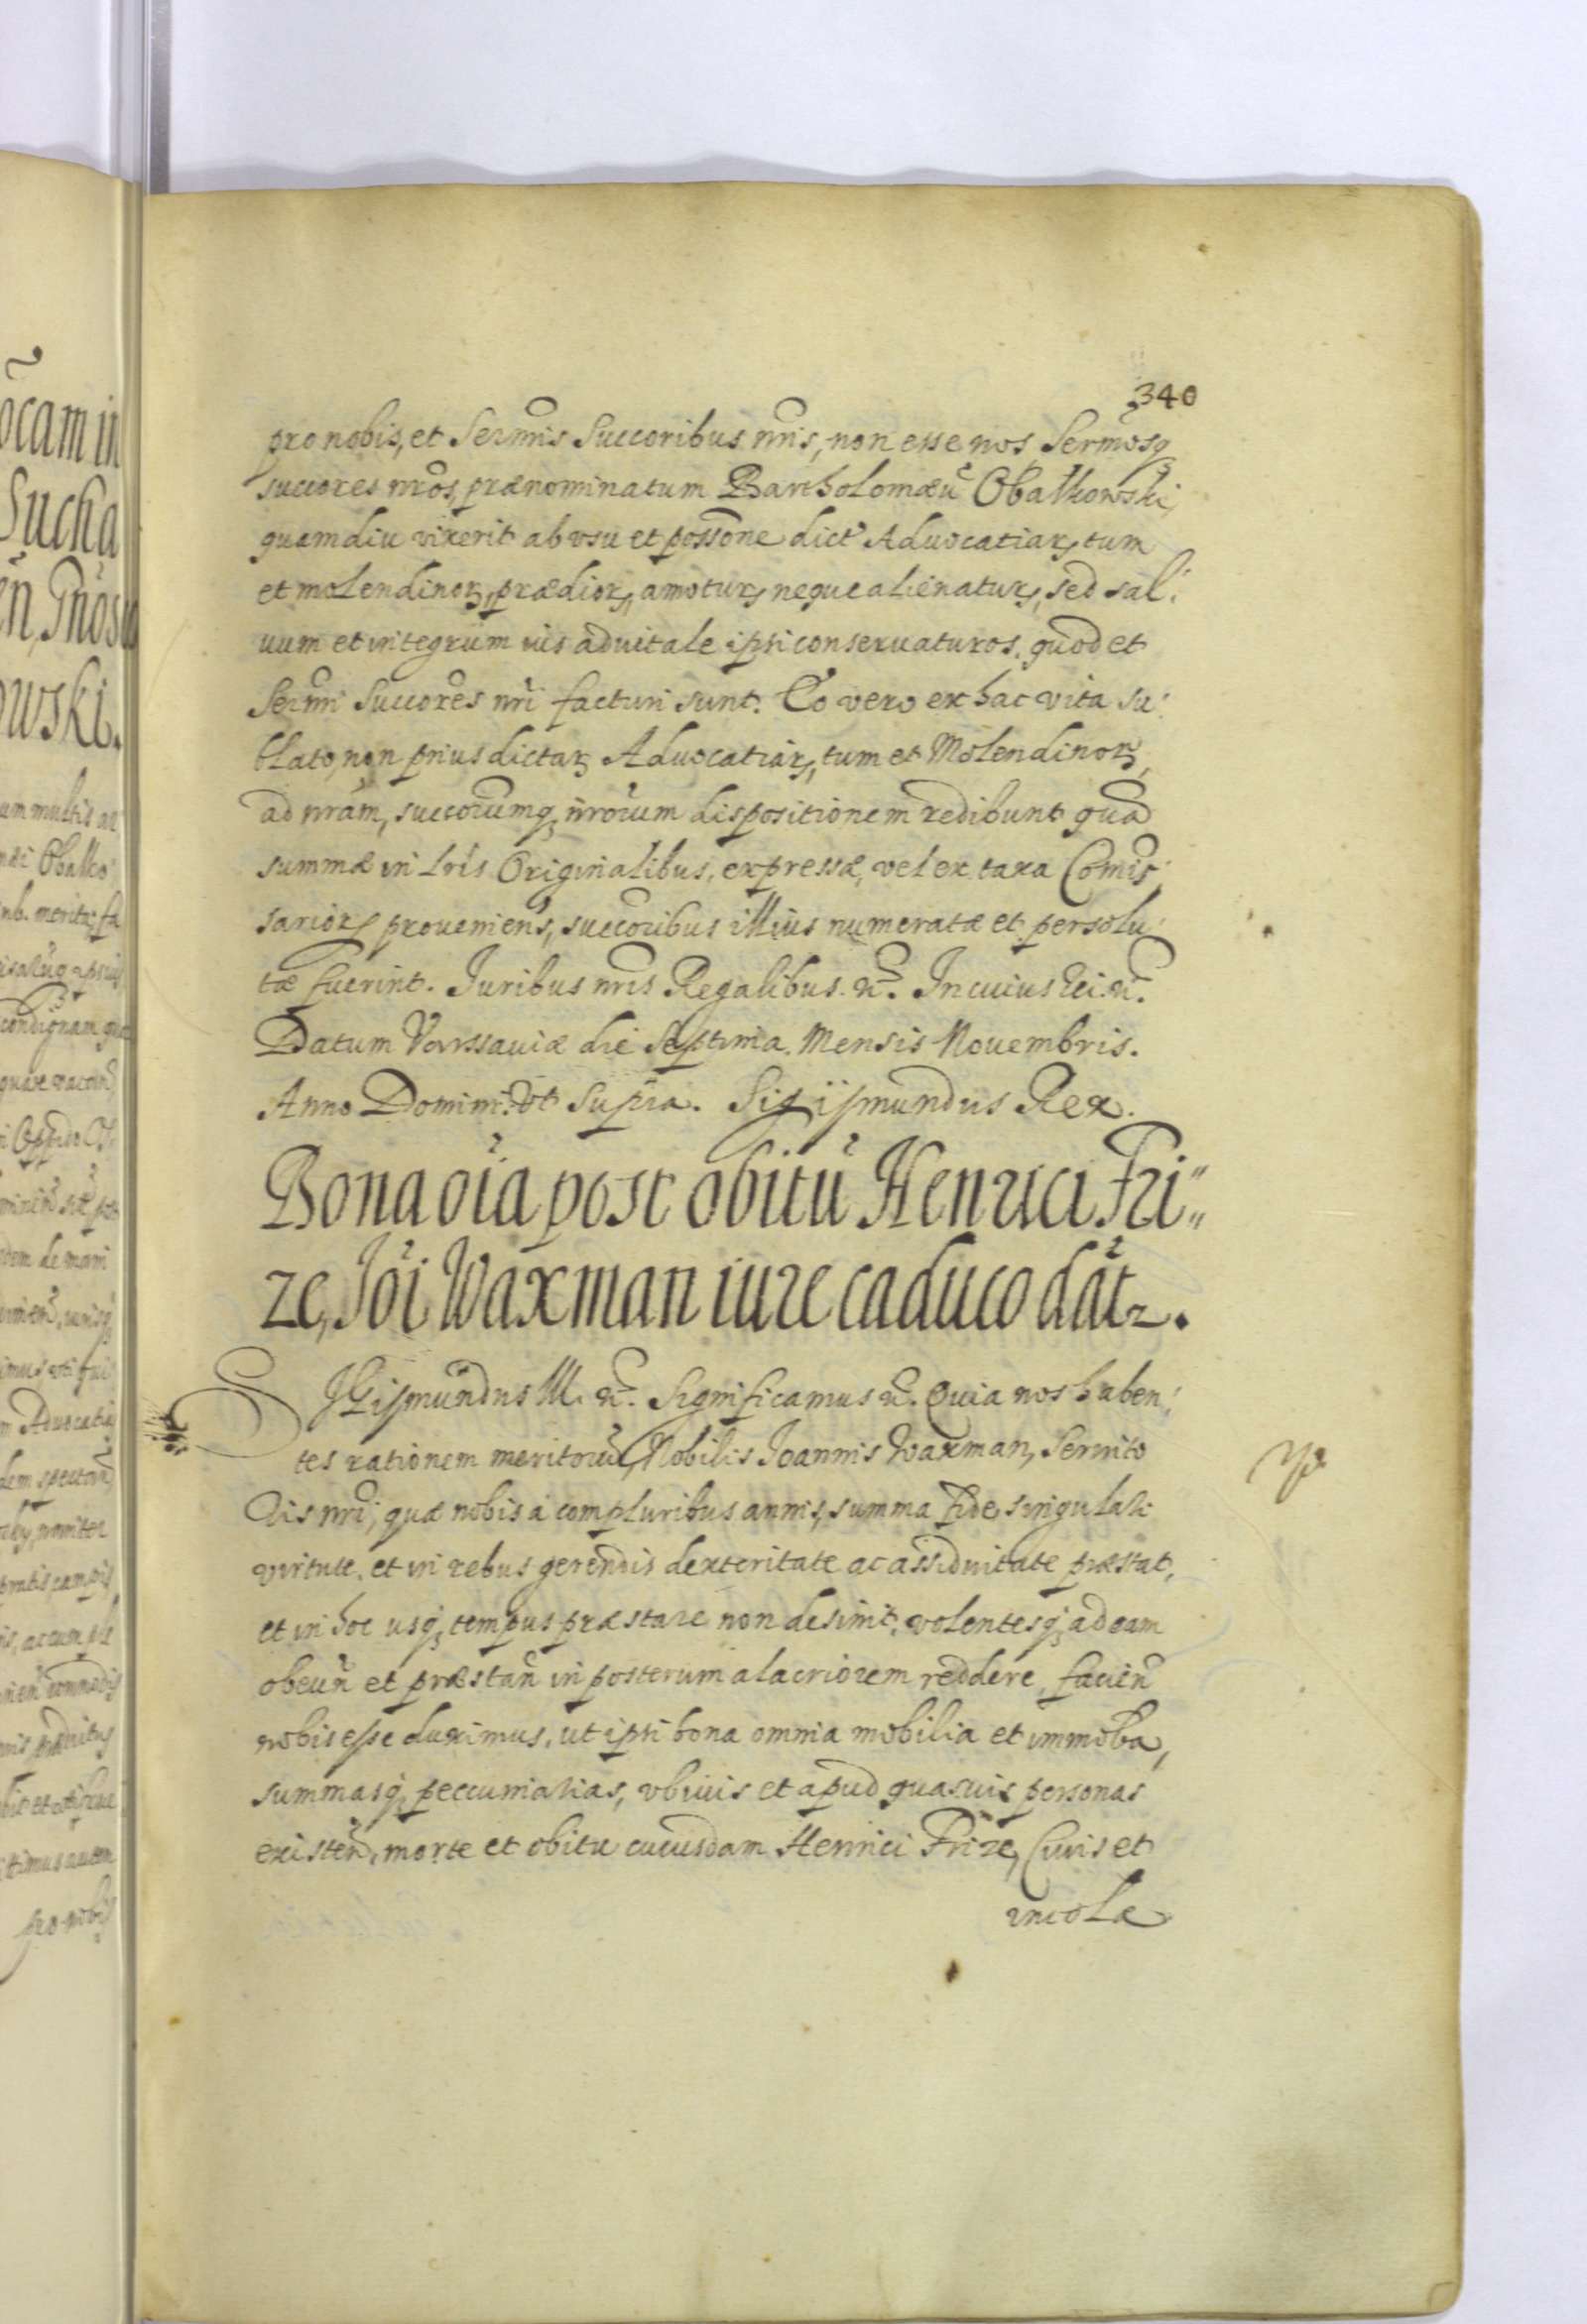 340
pro nobis, et Sermis Succoribus nris, non esse nos Sermosq
succores nros, prænominatum Bartholomæu Obalkowski,
quamdiu vixerit ab usu et possone dict Advocatiar, tum
et molendinor, prædior, amotur, neque alienatur, sed sal:
uum et integrum ius aduitale ipsi conseruaturos, quod et
Sermi Succores nri facturi sunt. Eo vero ex hac vita su:
blato, non prius dictar Aduocatiar, tum et Molendinor,
ad nram, succorumq, nrorum dispositionem redibunt qua
summæ in lris Originalibus, expressæ, vel ex taxa Comis:
sarior proueniens, succoribus illius numeratæ et persolu:
tæ fuerint. Juribus nris Regalibus. &. In cuius Rei. &.
Datum Varssauiæ die Septima. Mensis Nouembris.
Anno Domini. Vt Supra. Sigiismundus Rex.
Bona oia post obitu Henrici Fri„
ze, Joi Waxman iure caduco datr.
SIGismundus III. &. Significamus &. Quia nos haben:
tes rationem meritoru, Nobilis Joannis Waxman, Seruito
ris nri, quæ nobis a compluribus annis, summa fide, singulari
virtute, et in rebus gerendis dexteritate ac assiduitate præstat,
et in hoc usq, tempus præstare non desinit, volentesq, ad eam
obeun et præstan in posterum alacriorem reddere, facien
nobis esse duximus, ut ipsi bona omnia mobilia et immoba,
summasq, peccuniarias, vbiuis et apud quasuis personas
existen, morte et obitu cuiusdam Henrici Frize, Ciuis et
incolæ